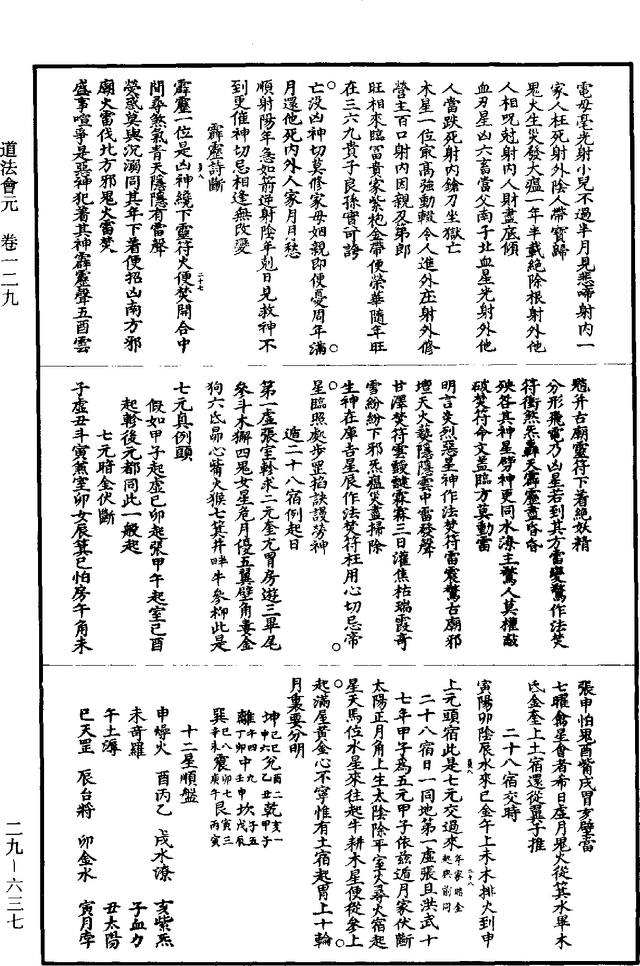 道法會元　卷一二九
電母毫光射小兒不過半月見悲啼射內一
家人枉死射外陰人帶寶歸
鬼火生災發大瘟一年半載絕除根射外他
人相咒尅射內人財盡底傾
血刃星凶六畜當父南子北血星光射外他
人當跌死射內鎗刀坐獄亡
木星一位最高強動轍令人進外庄射外修
營主百口射內因親及弟郎
旺相來臨富貴家紫袍金帶便榮華隨年旺
在三六九貴子良孫實可誇
亡沒凶神切莫修家母姻親即便憂周年滿
月還他死內外人家月月愁
順射陽年急如箭逆射陰年剋日見救神不
到更催神切忌相逢無改變
霹靂詩斷
霹靂一位是凶神繞下靈符火便焚開合中
間尋煞氣青天隱隱有雷聲
熒惑莫與沉溺同其年下著便招凶南方邪
廟火雷伐北方邪鬼火雷焚
盛事喧爭是惡神犯著其神霹靂聲五酉雲
魈并古廟靈符下着絕妖精
分形飛電乃凶星若到其方雷變驚作法焚
符衝煞炁轟天霹靂晝昏昏
殃咎其神星劈神更同水潦主驚人莫櫃敲
破焚符命文蓋臨方莫動雷
明言炎烈惡星神作法焚符雷震驚古廟邪
壇天火爇隱隱雲中雷發聲
甘澤焚符雲靉靆霖霖三日灌焦枯瑞霞奇
雪紛紛下邪炁瘟災盡掃除
生神在庫吉星辰作法焚符枉用心切忌帝
星臨照處步罡掐訣謾勞神
遁二十八宿例起日
第一虛張室軫求二元奎亢胃房遊三畢尾
參斗木獬四鬼女星危月侵五翼壁角婁金
狗六氐昴心觜火猴七箕井畔牛參柳此是
七元真例頭
假如甲子起虛己卯起張甲午起室己酉
起軫後元都同此一般起
七元暗金伏斷
子虛丑斗寅煞室卯女辰箕巳怕房午角未
張申怕鬼酉觜戌胃亥壁當
七曜禽星會者希日虛月鬼火從箕水畢木
氐金奎上土宿還從翼子推
二十八宿交時
寅陽卯陰辰水來巳金午上未木排火到申
上元頭宿此是七元交過來年家暗金起與前同
二十八宿日一同地第一虛張且洪武十
七年甲子為五元甲子依茲遁月家伏斷
太陽正月角上生太陰除平室火尋火宿起
星天馬位水星來往起牛耕木星便從參上
起滿屋黃金心不寧惟有土宿起胃上十輪
月裏要分明
坤申六兌酉二乾亥一
離午九中坎子五
巽巳八震卯七艮寅三
十二星順盤
申燥火　酉丙乙　戌水潦　亥紫炁
未奇羅　子血刃
午土溽　丑太陽
巳天罡　辰台將　卯金水　寅月孛
二九—六三七